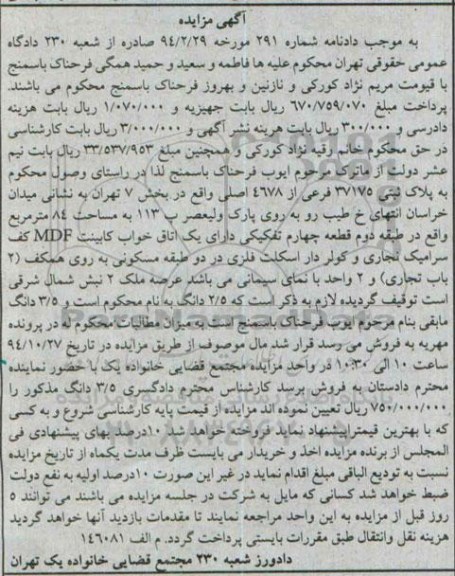 آگهی مزایده
به موجب دادنامه شماره ۲۹۱ مورخه ۹۴/۲/۲۹ صادره از شعبه ۲۳۰ دادگاه
عمومی حقوقی تهران محکوم علیه ها فاطمه و سعید و حمید همگی فرحناک باسمنج
با قیومت مریم نژاد کورکی و نازنین و بهروز فرحناک باسمنج محکوم می باشند.
پرداخت مبلغ ۶۷۰/۷۵۹/۰۷۰ ریال بابت جهیزیه و ۱/۰۷۰/۰۰۰ ریال بابت هزینه
دادرسی و ۳۰۰/۰۰۰ ریال بابت هرینه نشر آگهی و ۳/۰۰۰/۰۰۰ ریال بابت کارشناسی
در حق محکوم خانم رقیه نژاد کورکی و همچنین مبلغ ۳۳/۵۳۷/۹۵۳ ریال بابت نیم
عشر دولت از ماترک مرحوم ایوب فرحناک باسمنج لذا در راستای وصول محکوم
به پلاک ثبتی ۳۷۱۷۵ فرعی از ۴۶۷۸ اصلی واقع در بخش ۷ تهران به نشانی میدان
خراسان انتهای خ طیب رو به روی پارک ولیعصر پ ۱۱۳ به مساحت ۸۴ مترمربع
واقع در طبقه دوم قطعه چهارم تفکیکی دارای یک اتاق خواب کابینت MDF کف
سرامیک تجاری و کولر دار اسکلت فلزی در دو طبقه مسکونی به روی همکف (۲
باب تجاری) و ۲ واحد با نمای سیمانی می باشد عرصه ملک ۲ نبش شمال شرقی
است توقیف گردیده لازم به ذکر است که ۲/۵ دانگ به نام محکوم است و ۳/۵ دانگ
مابقی بنام مرحوم ایوب فرحناک باسمنج است به میزان مطالبات محکوم له در پرونده
مهریه به فروش می رسد قرار شد مال موصوف از طریق مزایده در تاریخ ۹۴/۱۰/۲۷
ساعت ۱۰ الی ۱۰:۳۰ در واحد مزایده مجتمع قضایی خانواده یک با حضور نماینده
محترم دادستان به فروش برسد کارشناس محترم دادگستری ۳/۵ دانگ مذکور را
۷۵۰/۰۰۰/۰۰۰ ریال تعیین نموده اند مزایده از قیمت پایه کارشناسی شروع و به کسی
که با بهترین قیمت پیشنهاد نماید فروخته خواهد شد ۱۰درصد بهای پیشنهادی فی
المجلس از برنده مزایده اخذ و خریدار می بایست ظرف مدت یکماه از تاریخ مزایده
نسبت به تودیع الباقی مبلغ اقدام نماید در غیر این صورت ۱۰درصد اولیه به نفع دولت
ضبط خواهد شد کسانی که مایل به شرکت در جلسه مزایده می باشند می توانند ۵
روز قبل از مزایده به این واحد مراجعه نمایند تا مقدمات بازدید آنها خواهد گردید
هزینه نقل وانتقال طبق مقررات بایستی پرداخت گردد. م الف ۱۴۶۰۸۱
دادورز شعبه ۲۳۰ مجتمع قضایی خانواده یک تهران